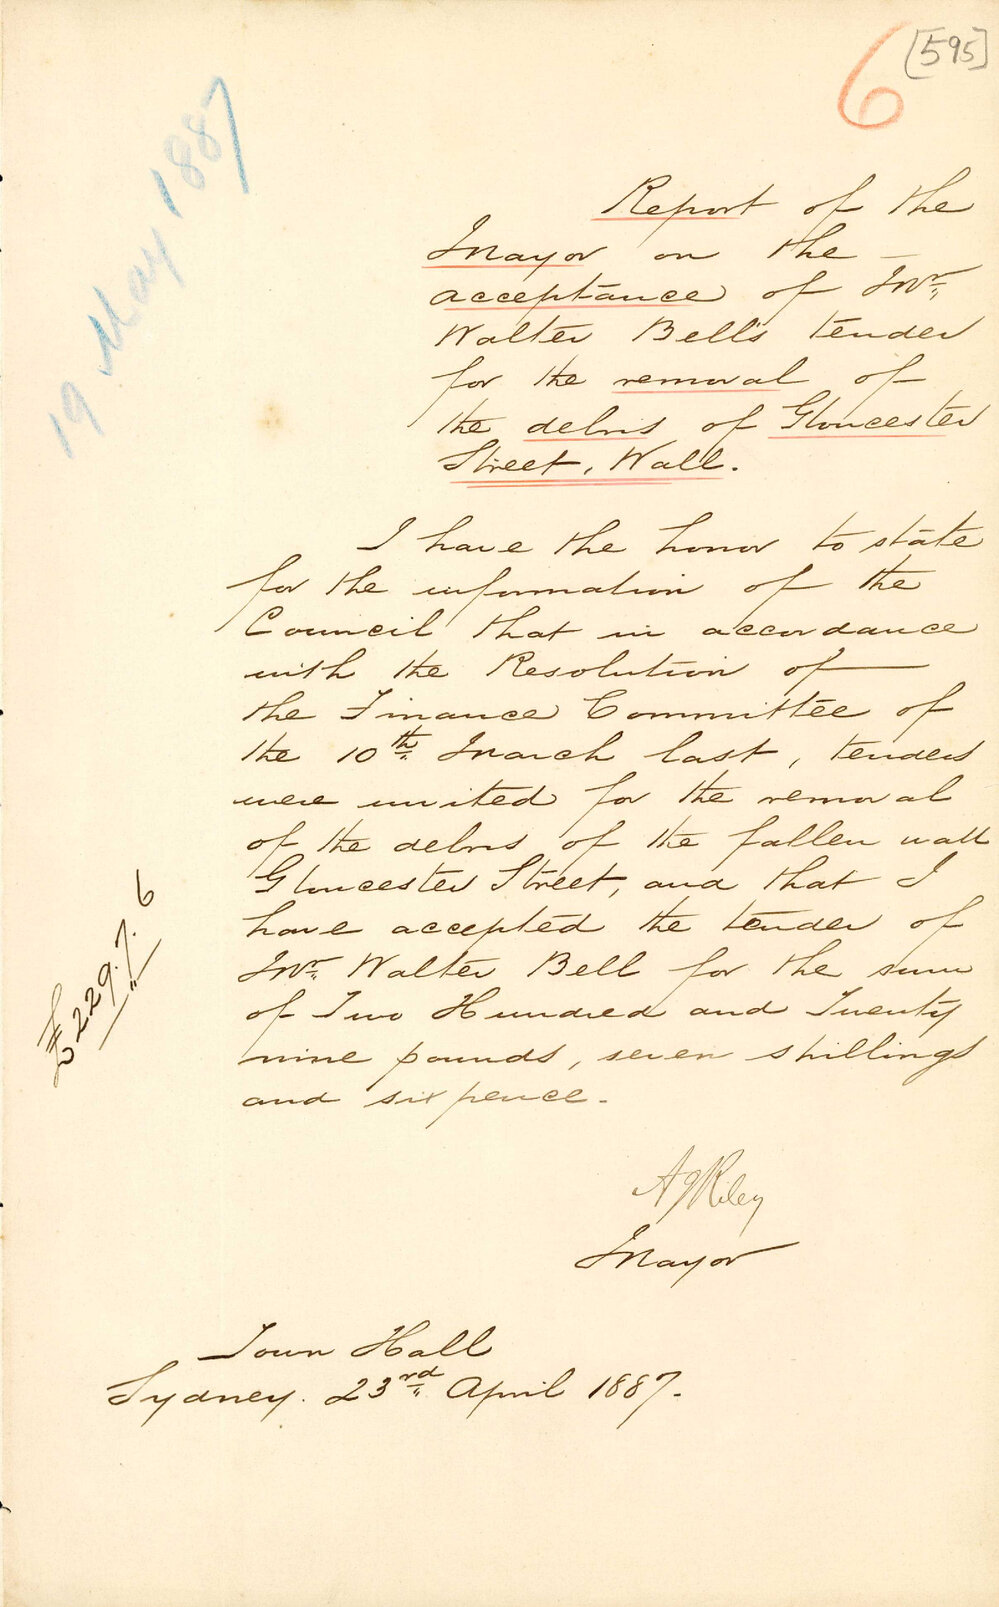 6 [595]
19 May 1887
Report of the
Mayor on the -
acceptance of Mr.
Walter Bell's tender
for the removal of
the debris of Gloucester
Street, Wall.
I have the honor to state
for the information of the
Council that in accordance
with the Resolution of
the Finance Committee of
the 10th March last, tenders
were invited for the removal
of the debris of the fallen wall
Gloucester Street, and that I
have accepted the tender of
Mr. Walter Bell for the sum
of Two Hundred and Twenty
nine pounds, seven shillings
and six pence.
£229.7.6
AJRiley
Mayor
Town Hall
Sydney. 23rd April 1887.